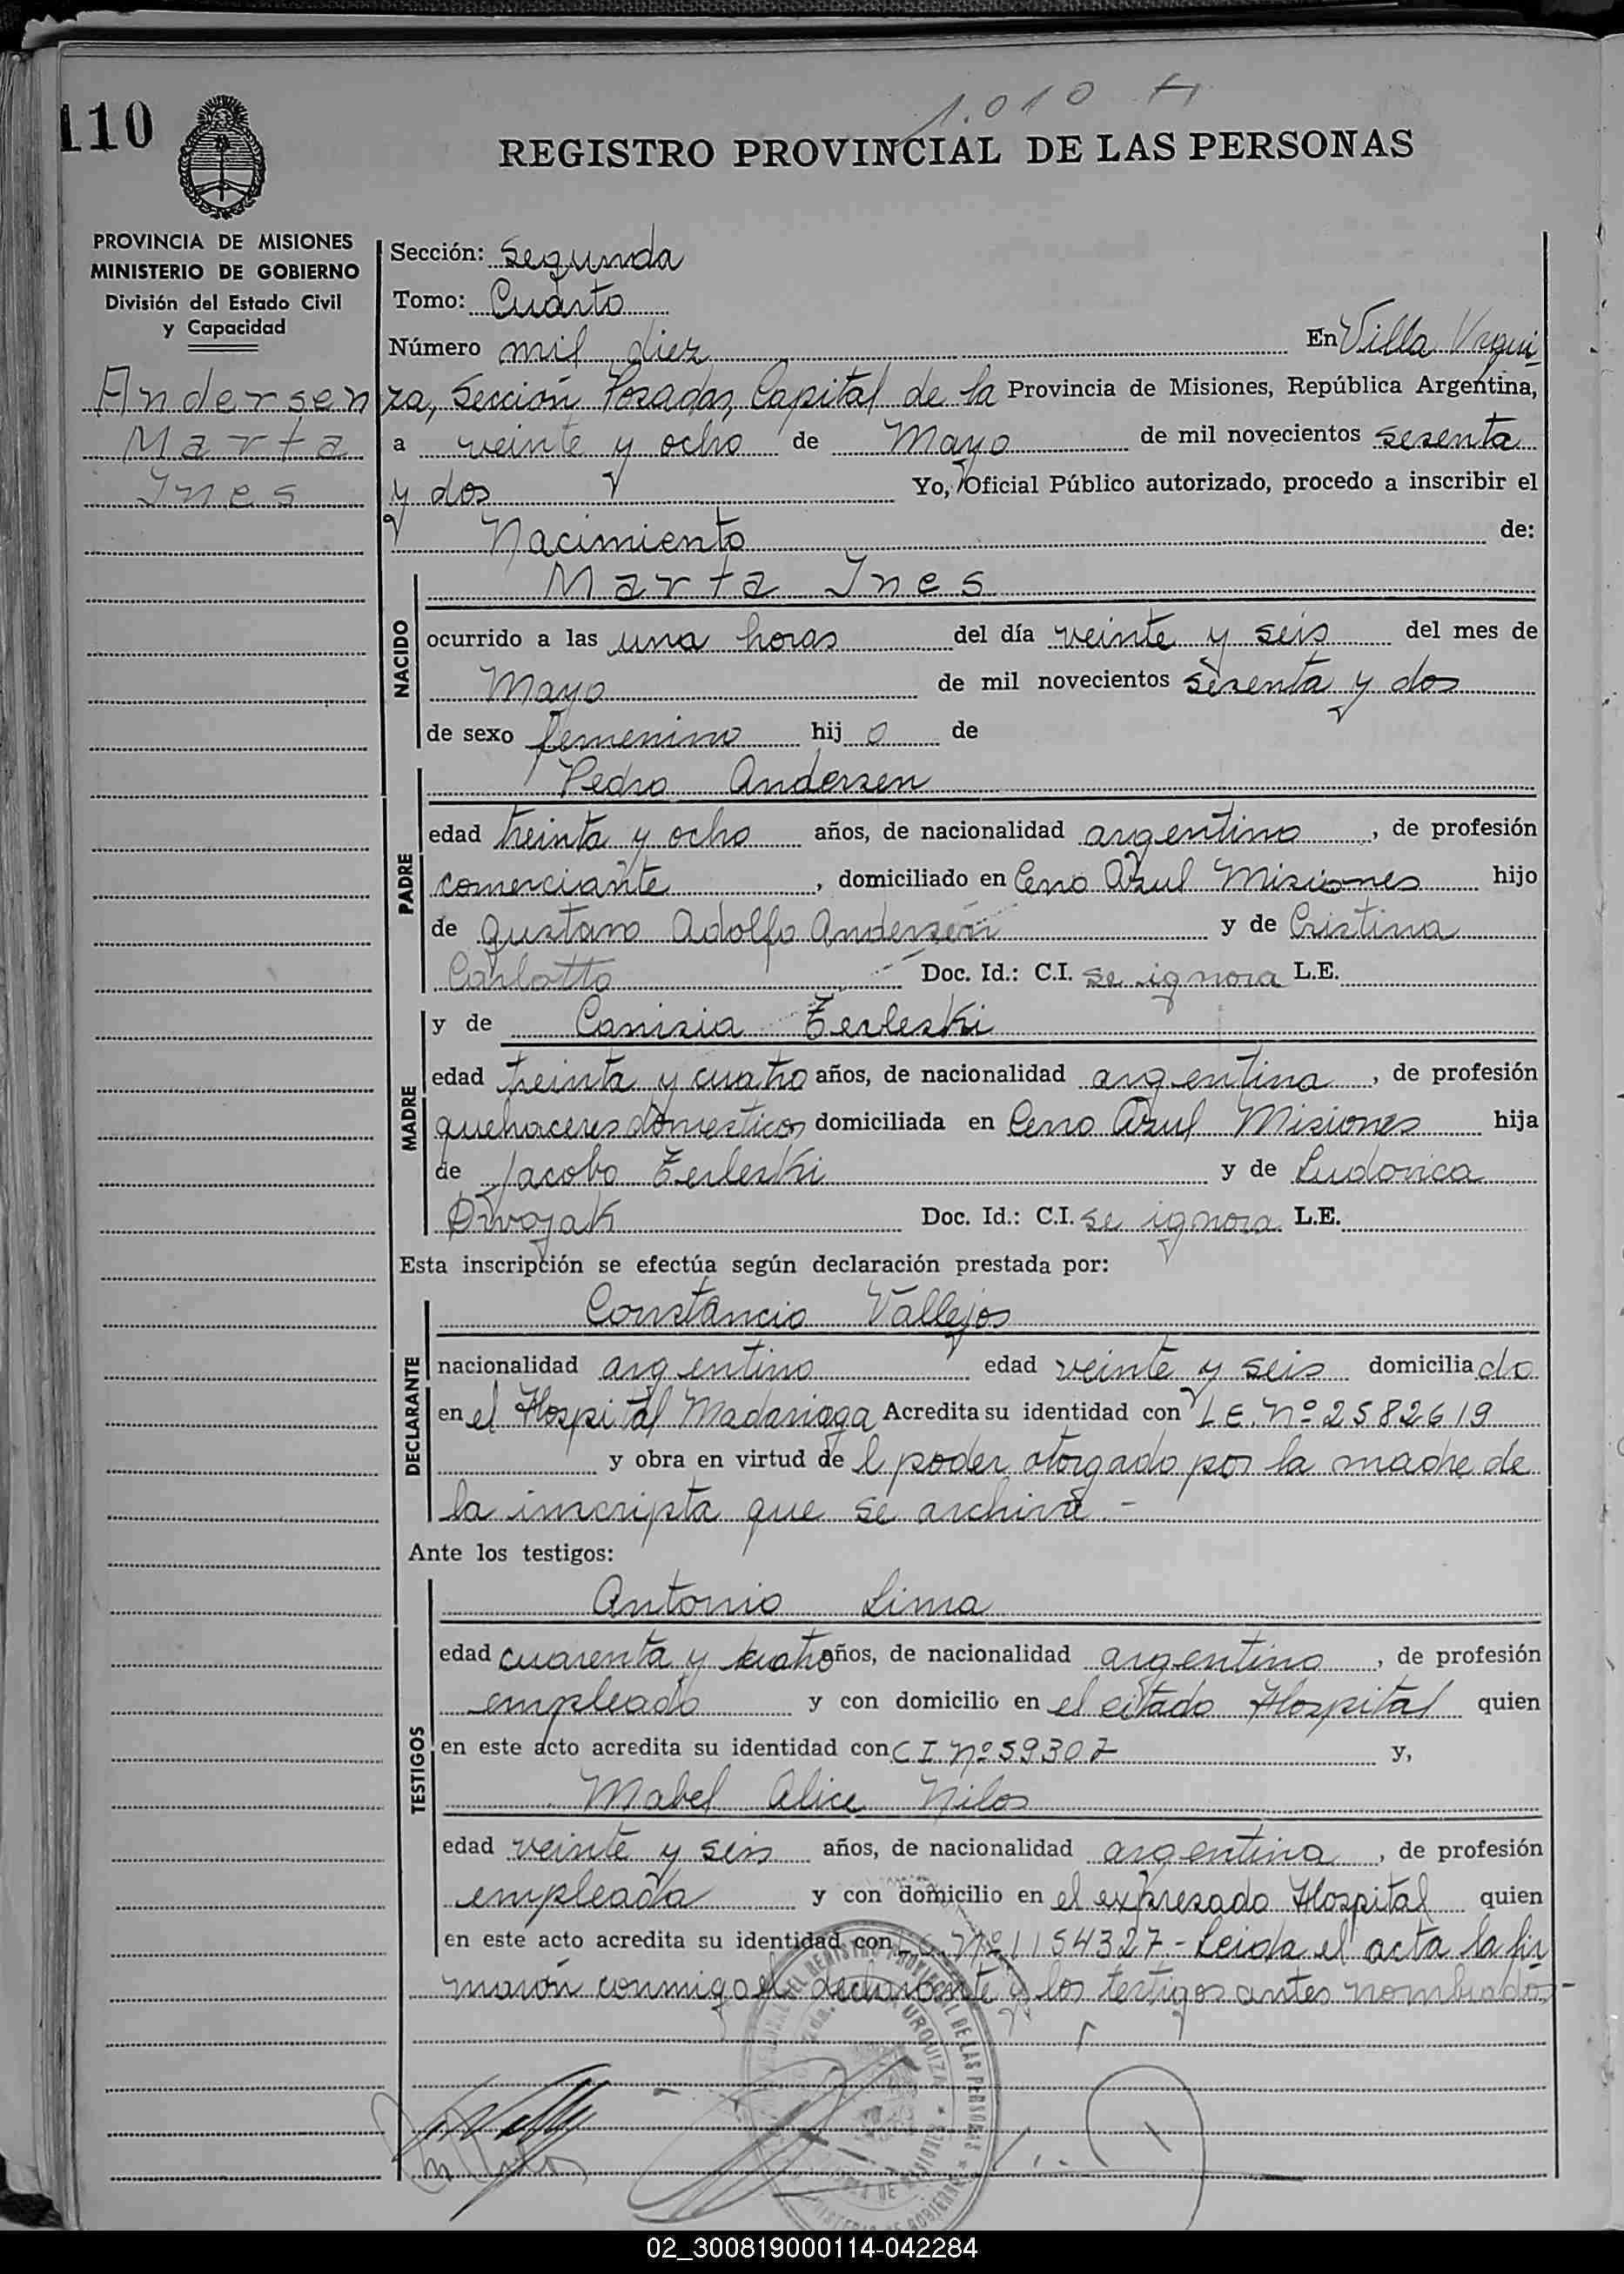 1.010 H
110
REGISTRO PROVINCIAL DE LAS PERSONAS
PROVINCIA DE MISIONES
MINISTERIO DE GOBIERNO
División del Estado Civil
y Capacidad
Andersen
Marta
Ines
Sección: Segunda
Tomo: Cuarto
Número mil diez En Villa Urqui
za, Sección Posadas, Capital de la Provincia de Misiones, República Argentina,
a veinte y ocho de Mayo de mil novecientos sesenta
y dos Yo, Oficial Público autorizado, procedo a inscribir el
Nacimiento de:
NACIDO
Marta Ines
ocurrido a las una horas del día veinte y seis del mes de
Mayo de mil novecientos sesenta y dos
de sexo femenino hij o de
PADRE
Pedro Andersen
edad treinta y ocho años, de nacionalidad argentino, de profesión
comerciante, domiciliado en Cerro Azul Misiones hijo
de Gustavo Adolfo Andersen y de Cristina
Carlotta Doc. Id.: C.I. se ignora L.E.
MADRE
y de Canisia Zerleski
edad treinta y cuatro años, de nacionalidad argentina, de profesión
quehaceres domesticos domiciliada en Cerro Azul Misiones hija
de Jacobo Zerleski y de Ludovica
Drwojak Doc. Id.: C.I. se ignora L.E.
Esta inscripción se efectúa según declaración prestada por:
DECLARANTE
Constancio Vallejos
nacionalidad argentino edad veinte y seis domiciliado
en el Hospital Madariaga Acredita su identidad con L E. Nº 2582619
y obra en virtud de l poder otorgado por la madre de
la inscripta que se archiva.-
Ante los testigos:
TESTIGOS
Antonio Lima
edad cuarenta y cuatro años, de nacionalidad argentino, de profesión
empleado y con domicilio en el citado Hospital quien
en este acto acredita su identidad con C I Nº 59307 y,
Mabel Alice Nilos
edad veinte y seis años, de nacionalidad argentina, de profesión
empleada y con domicilio en el expresado Hospital quien
en este acto acredita su identidad con Nº 1154327- Leida el acta la fir
maron conmigo el declarante y los testigos antes nombrados-
02_300819000114-042284